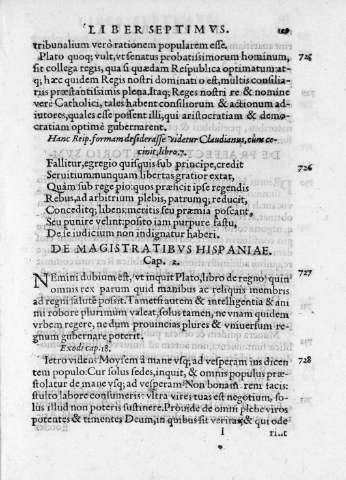 LIBER SEPTIMVS. 129
tribunalium verò rationem popularem esse.
Plato quoq; vult, vt senatus probatissimorum hominum, 725
sit collega regis, qua si quædam Respublica optimatum at-
q; hæc quidem Regis nostri dominati o est, multis consilia-
riis præstantissimis plena. Itaq; Reges nostri re & nomine
verè Catholici, tales habent consiliorum & actionum ad-
iutores, quales esse possent illi, qui aristocratiam & demo-
cratiam optimè gubernarent.
Hanc Reip. formam desiderasse videtur Claudianus, cùm ce-
cinit, libro.7.
Fallitur, egregio quisquis sub principe, credit 726
Seruitium. nunquam libertas gratior extat,
Quàm sub rege pio: quos præficit ipse regendis
Rebus, ad arbitrium plebis, patrumq; reducit,
Conceditq; libens: meritis seu præmia poscant,
Seu punire velint: posito iam purpure fastu,
De se iudicium non indignatur haberi.
DE MAGISTRATIBVS HISPANIAE.
Cap. 2.
NEmini dubium est, vt inquit Plato, libro de regno: quin 727
omnis rex parum quid manibus ac reliquis membris
ad regni salutē possit. Tametsi autem & intelligentia & ani
mi robore plurimum valeat, solus tamen, ne vnam quidem
vrbem regere, ne dum prouincias plures & vniuersum re-
gnum gubernare poterit.
Exodi cap.18.
Ietro videns Moysem à mane vsq; ad vesperam ius dicen 728
tem populo. Cur solus sedes, inquit, & omnis populus præ-
stolatur de mane vsq; ad vesperam? Non bonam rem facis:
stulto labore consumeris: vltra vires tuas est negotium, so-
lus illud non poteris sustinere. Prouide de omni plebe viros
potentes & timentes Deum, in quibus sit veritas, & qui ode
I